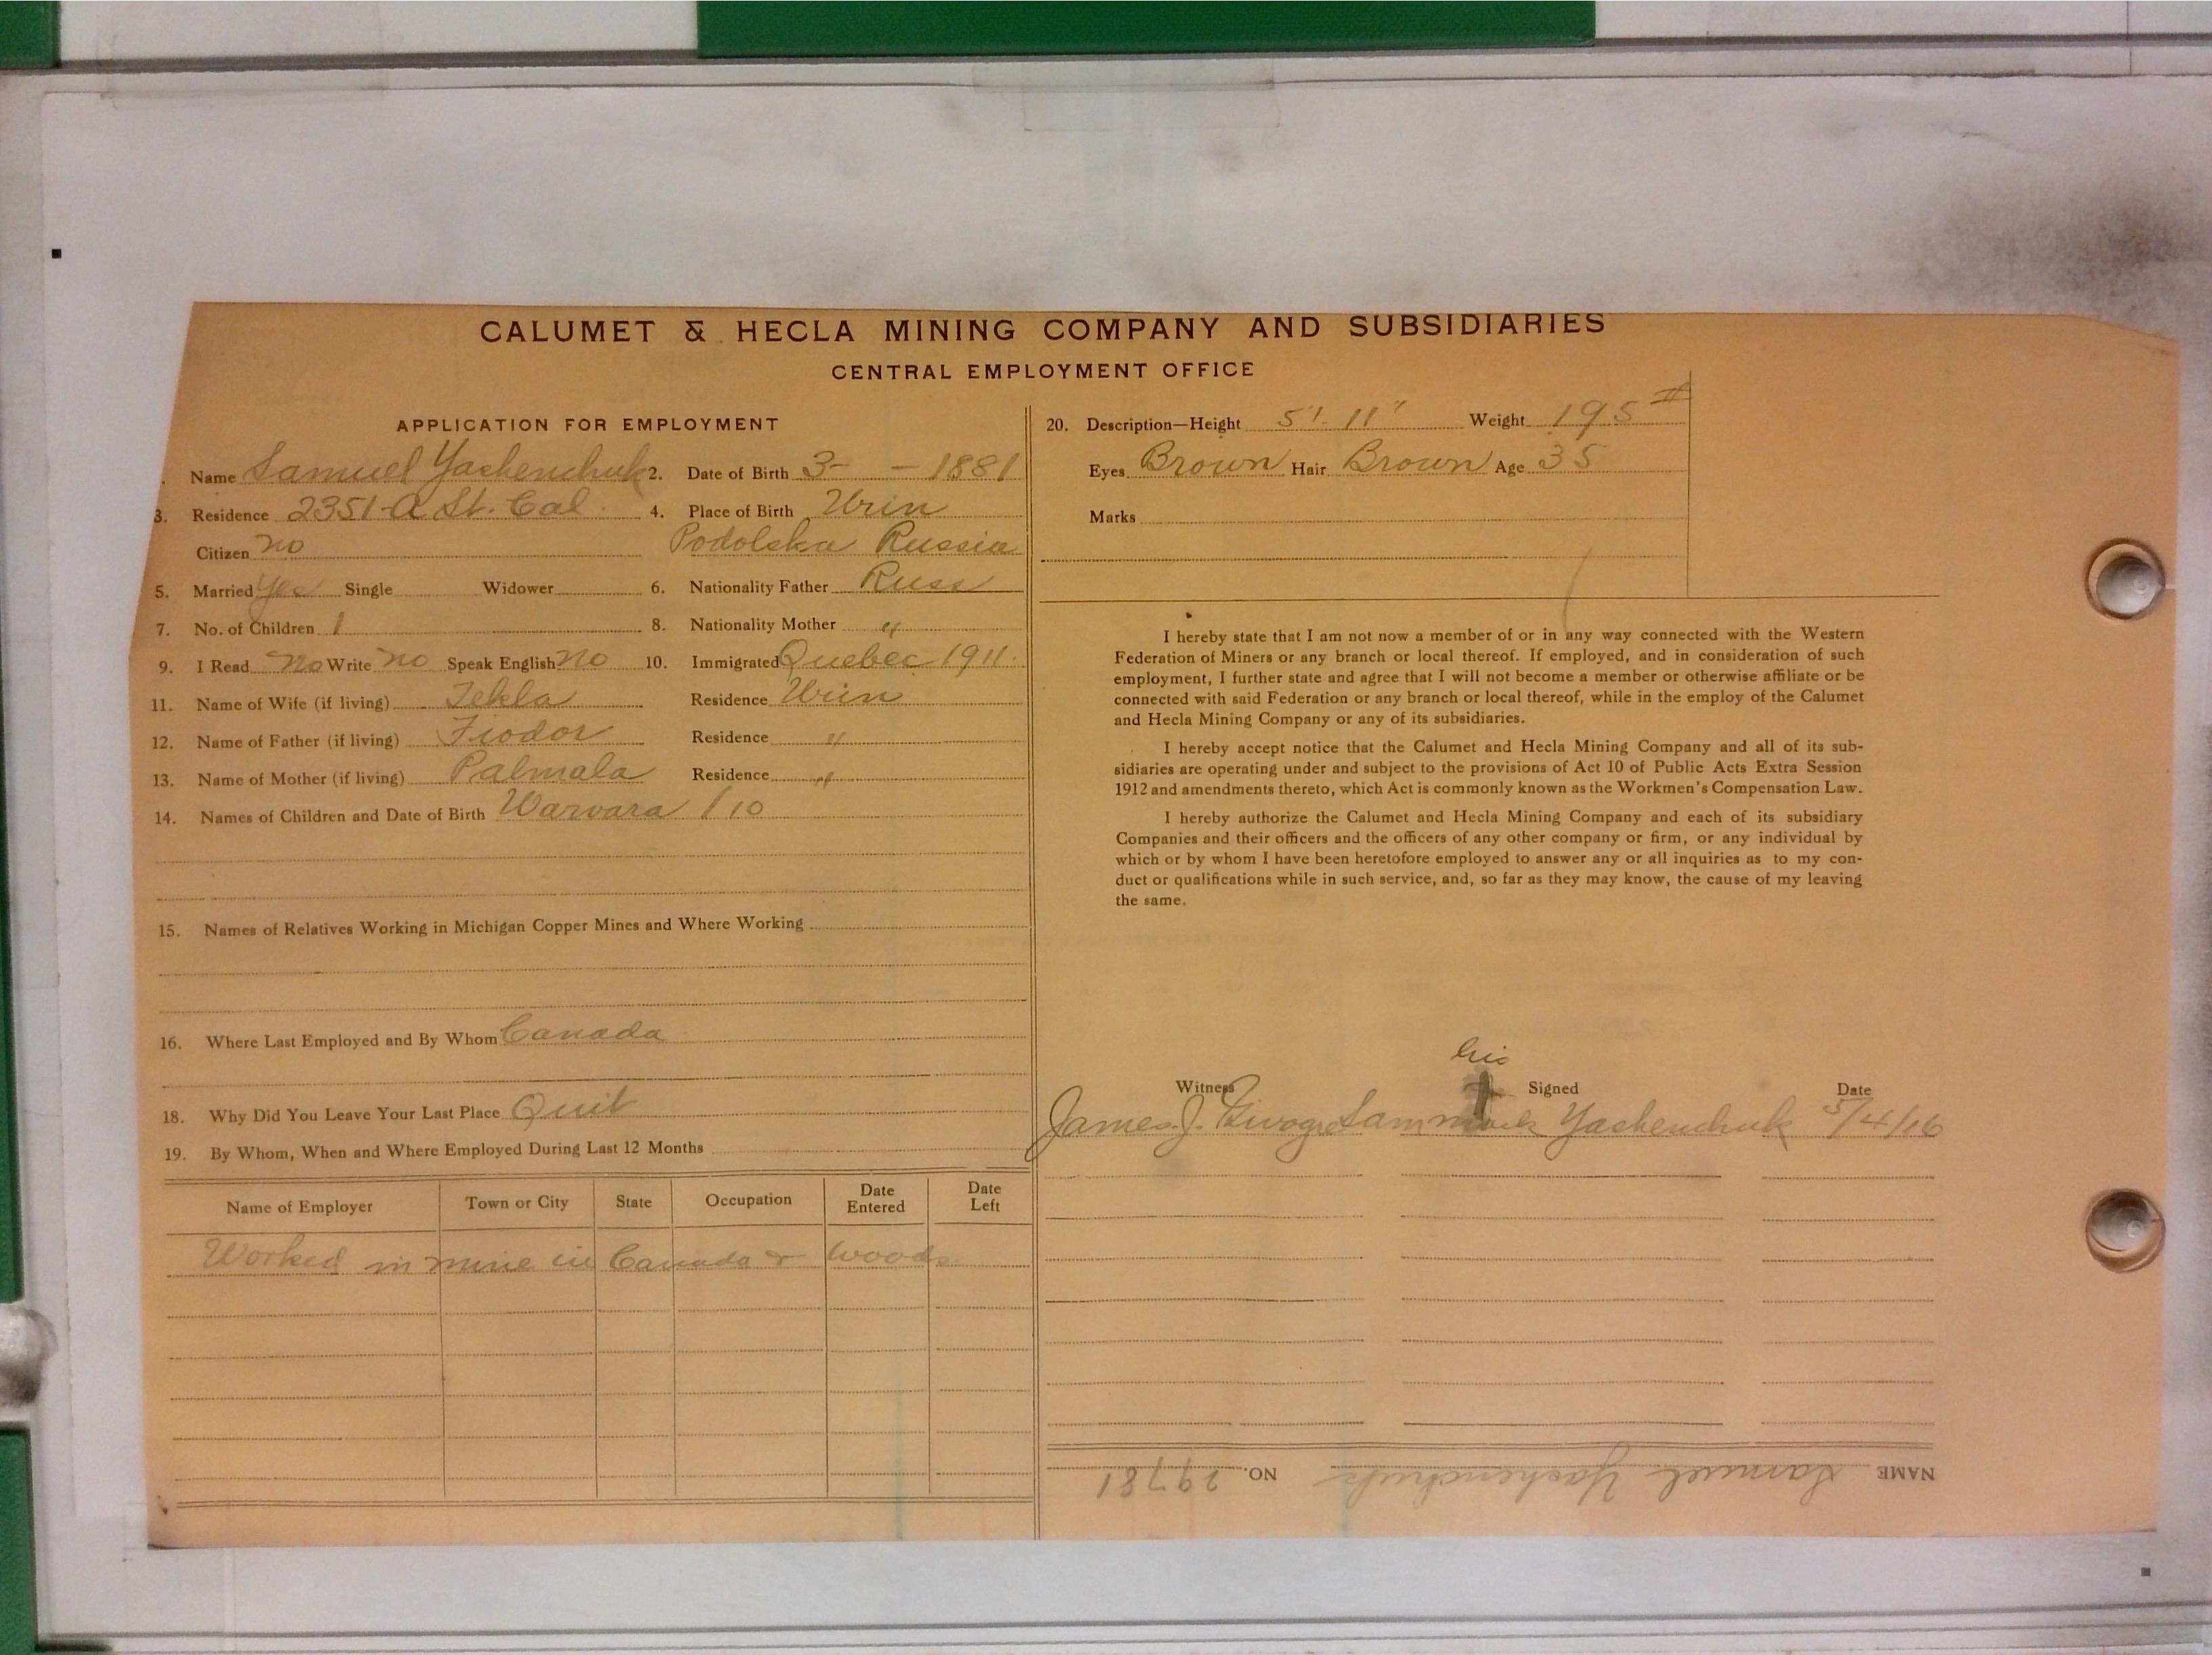 CALUMET & HECLA MINING COMPANY AND SUBSIDIARIES
CENTRAL EMPLOYMENT OFFICE
APPLICATION FOR EMPLOYMENT
Name Samuel Yashenchuk 2. Date of Birth 3- - 1881
3. Residence 2351-A St. Cal. 4. Place of Birth Urin
Citizen no Podolska Russia
5. Married Yes Single Widower 6. Nationality Father Russ
7. No. of Children 1 8. Nationality Mother "
9. I Read No Write no Speak English no 10. Immigrated Quebec 1911.
11. Name of Wife (if living) Tekla Residence Urin
12. Name of Father (if living) Fiodor Residence "
13. Name of Mother (if living) Palmala Residence "
14. Names of Children and Date of Birth Warvara / 10
15. Names of Relatives Working in Michigan Copper Mines and Where Working
16. Where Last Employed and By Whom Canada
18. Why Did You Leave Your Last Place Quit
19. By Whom, When and Where Employed During Last 12 Months
Name of Employer Town or City State Occupation Date Entered Date Left
Worked in mine in Canada & woods.
20. Description—Height 5' 11" Weight 195 #
Eyes Brown Hair Brown Age 35
Marks
I hereby state that I am not now a member of or in any way connected with the Western
Federation of Miners or any branch or local thereof. If employed, and in consideration of such
employment, I further state and agree that I will not become a member or otherwise affiliate or be
connected with said Federation or any branch or local thereof, while in the employ of the Calumet
and Hecla Mining Company or any of its subsidiaries.
I hereby accept notice that the Calumet and Hecla Mining Company and all of its sub-
sidiaries are operating under and subject to the provisions of Act 10 of Public Acts Extra Session
1912 and amendments thereto, which Act is commonly known as the Workmen's Compensation Law.
I hereby authorize the Calumet and Hecla Mining Company and each of its subsidiary
Companies and their officers and the officers of any other company or firm, or any individual by
which or by whom I have been heretofore employed to answer any or all inquiries as to my con-
duct or qualifications while in such service, and, so far as they may know, the cause of my leaving
the same.
his
Witness Signed Date
James J. Sam mark Yashenchuk 5/4/16
NAME Samuel Yashenchuk NO. 29781